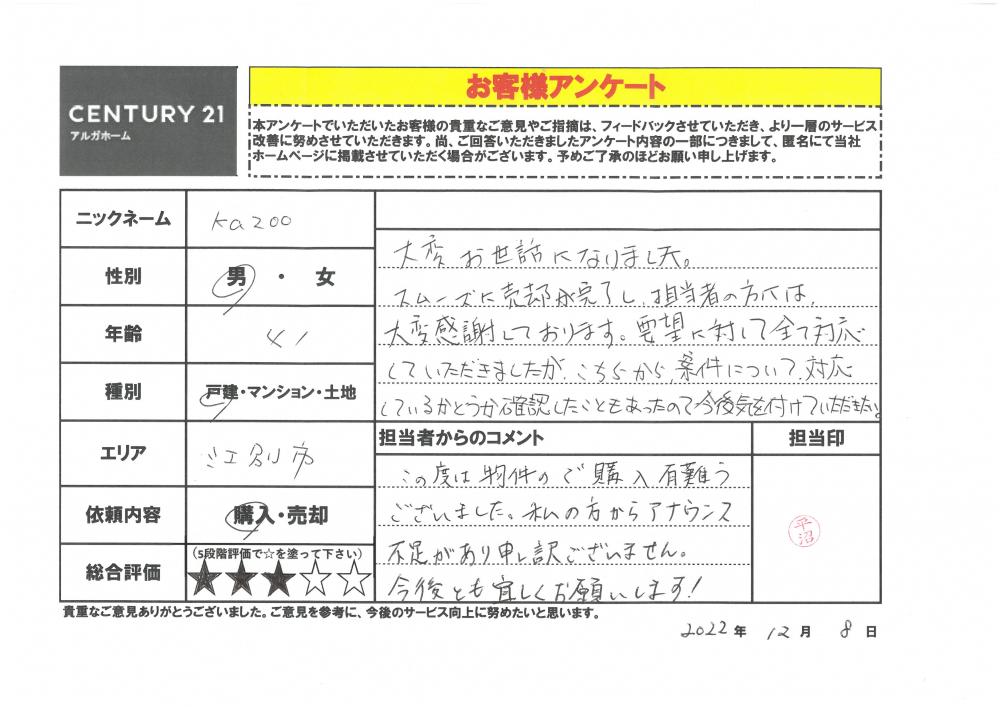 CENTURY 21
アルガホーム
お客様アンケート
本アンケートでいただいたお客様の貴重なご意見やご指摘は、フィードバックさせていただき、より一層のサービス
改善に努めさせていただきます。尚、ご回答いただきましたアンケート内容の一部につきまして、匿名にて当社
ホームページに掲載させていただく場合がございます。予めご了承のほどお願い申し上げます。
ニックネーム
kazoo
性別
男・女
年齢
41
種別
戸建・マンション・土地
エリア
江別市
依頼内容
購入・売却
総合評価
(5段階評価で☆を塗って下さい)
★★★☆☆
大変お世話になりました。
スムーズに売却が完了し、担当者の方には、
大変感謝しております。要望に対して全て対応
していただきましたが、こちらから、案件について、対応
しているかどうか確認したこともあったので今後気を付けていただきたい。
担当者からのコメント
担当印
この度は物件のご購入有難う
ございました。私の方からアナウンス
不足があり申し訳ございません。
今後とも宜しくお願いします!
平沼
貴重なご意見ありがとうございました。ご意見を参考に、今後のサービス向上に努めたいと思います。
2022年 12月 8日